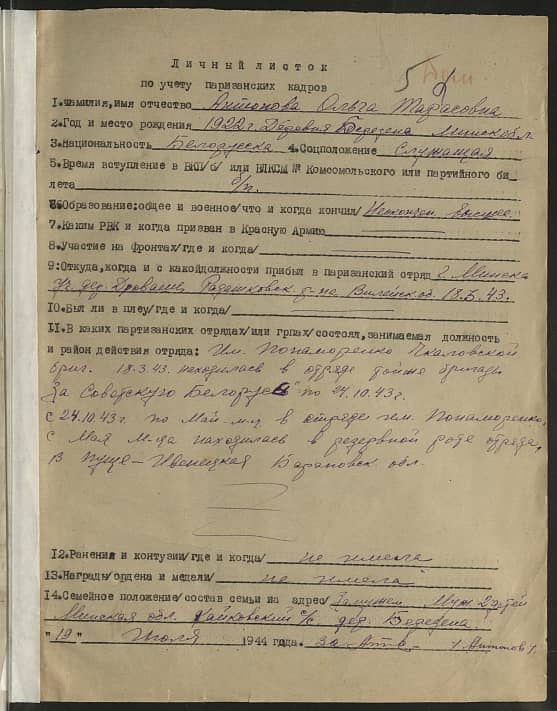 5
Личный листок
по учету паризанских кадров
1.Фамилия,имя отчество Антонова Ольга Тарасовна
2.Год и место рождения 1922 г. Деревня Березена Минск обл.
3.Национальность Белоруска 4.Соцположение Служащая
5.Время вступление в ВКП/б/ или ВЛКСМ № Комсомольского или партийного би-
лета б/п.
6.Образование:общее и военное/что и когда кончил/ Неокончен высшее
7.Каким РВК и когда призван в Красную Армию
8.Участие на Фронтах/где и когда/
9:Откуда,когда и с какойдолжности прибыл в паризанский отряд г. Минска
дер. Радашковск р-на Вилейск об. 18.3.43.
10.Был ли в плеу/где и когда/
11.В каких партизанских отрядах/или грпах/состоял,занимаемая должность
и район действия отряда: Им. Пономоренко Чкаловской
бриг. 18.3.43. находилась в отряде тойже бригады
За Советскую Белорусь" по 24.10.43г.
с 24.10.43г. по Май м-ц в отряде им. Пономоренко,
с Мая м-ца находилась в резервной роте отряда,
В пуще - Ивенецкая Барановск. обл.
12.Ранения и контузии/где и когда/ не имела
13.Награды/ордена и медали/ не имела
14.Семейное положение/состав семьи их адрес/ Замужем Муж 2 детей
Минская обл. с/с дер. Березена
"19" Июля 1944 года. /Антонов/